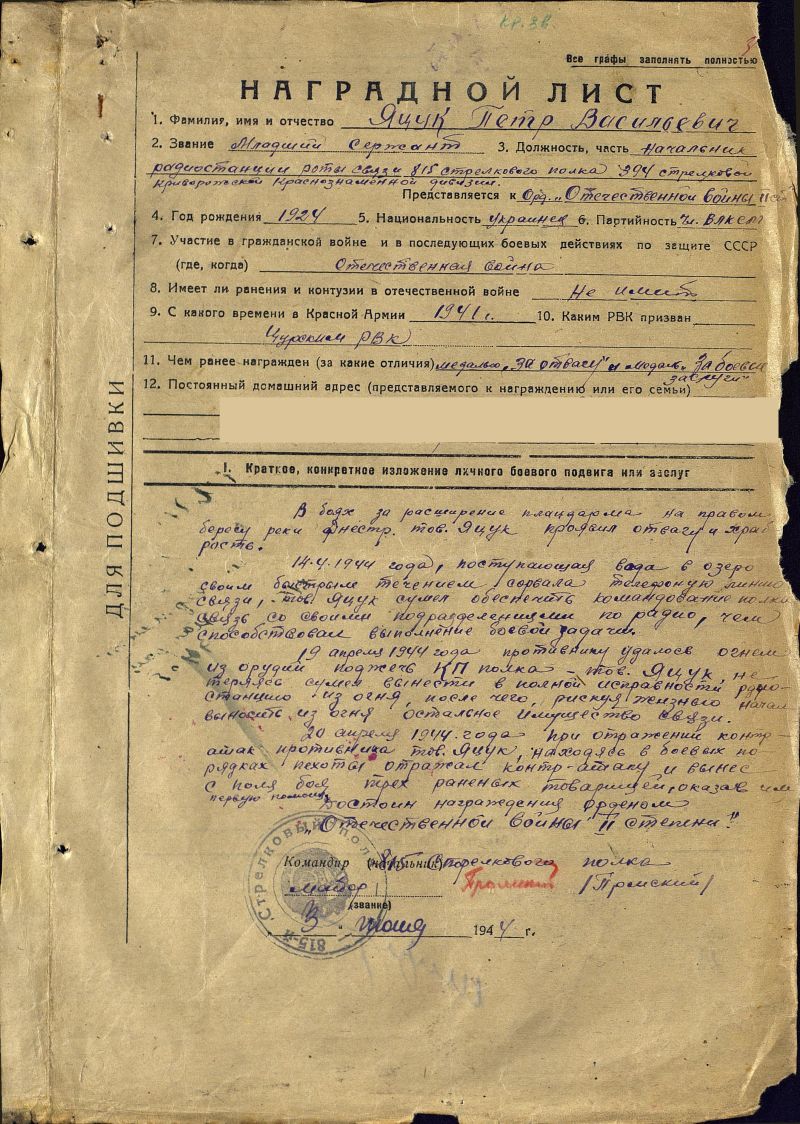 Кр. Зв.
Все графы заполнять полностью
НАГРАДНОЙ ЛИСТ
1. Фамилия, имя и отчество Яцук Петр Васильевич
2. Звание Младший Сержант 3. Должность, часть Начальник
радиостанции роты связи 815 стрелкового полка 394 стрелковой
Криворожской Краснознаменной дивизии.
Представляется к Орд. „Отечественной войны II ст
4. Год рождения 1924 5. Национальность украинец 6. Партийность чл. ВЛКСМ
7. Участие в гражданской войне и в последующих боевых действиях по защите СССР
(где, когда) Отечественная война
8. Имеет ли ранения и контузии в отечественной войне Не имеет
9. С какого времени в Красной Армии 1941 г. 10. Каким РВК призван
РВК
11. Чем ранее награжден (за какие отличия) медалью „За отвагу" и медаль „За боевые
заслуги"
12. Постоянный домашний адрес (представляемого к награждению или его семьи)
ДЛЯ ПОДШИВКИ
I. Краткое, конкретное изложение личного боевого подвига или заслуг
В боях за расширение плацдарма на правом
берегу реки Днестр. тов. Яцук проявил отвагу и храб
рость.
14.4.1944 года, поступающая вода в озеро
своим быстрым течением сорвала телефоную линию
связи, тов. Яцук сумел обеспечить командование полка
связь со своими подразделениями по радио, чем
способствовал выполнение боевой задачи.
19 апреля 1944 года противнику удалось огнем
из орудий поджечь КП полка – тов. Яцук, не
теряясь сумел вынести в полной исправности радио-
станцию из огня, после чего, рискуя жизнью начал
выносить из огня остальное имущество связи.
20 апреля 1944 года при отражении контр-
атак противника тов. Яцук, находясь в боевых по
рядках пехоты отражал контр-атаку и вынес
с поля боя трех раненых товарищей, оказав им
первую помощь.
Достоин награждения Орденом
„Отечественной войны II степени."
Командир (начальник) 815 Стрелкового полка
майор /Промский/
(звание)
3 1944 г.
815-й Стрелковый полк